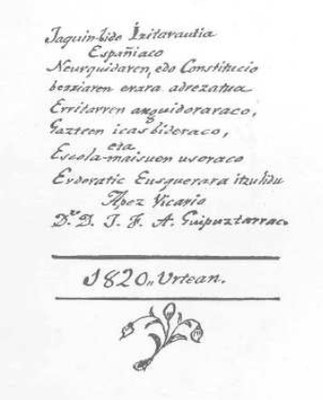 Jaquin-bide Iritarautia
Españiaco
Neurquidaren, edo Constitucio
berriaren erara adrezatua
Erritarren arguidoraraco,
Gazteen icasbideraco,
eta
Escola-maisuen usoraco
Erderatic Eusquerara itzulidu
Apez Vicario
Dr. D. J. F. A. Guipuztarrac.
1820,, Urtean.